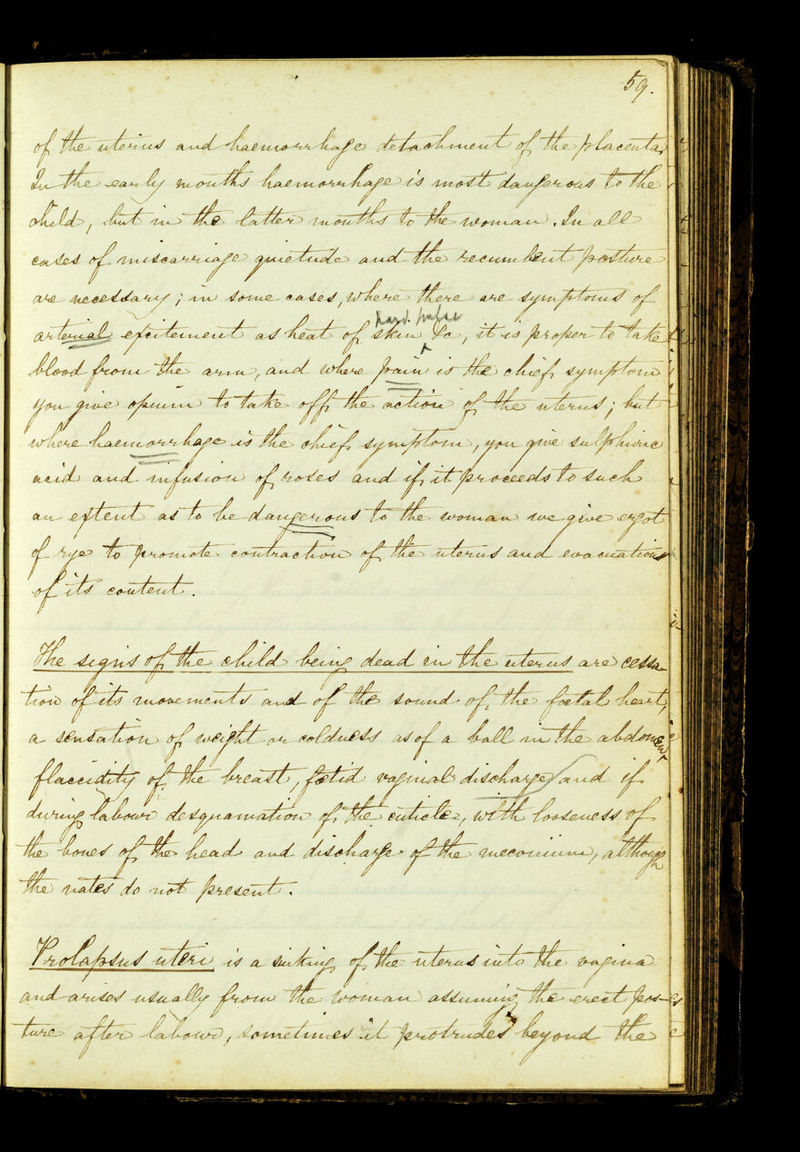 59.
of the uterus and haemorrhage detachment of the placenta,
In the early months haemorrhage is most dangerous to the
child, but in the latter months to the woman. In all
cases of miscarriage quietude and the recumbent posture
are necessary; in some cases, where there are symptoms of
hard pulse
arterial excitement as heat of skin &c, it is proper to take
blood from the arm, and where pain is the chief symptom
you give opium to take off the action of the uterus; but
where haemorrhage is the chief symptom, you give sulphuric
acid and infusion of roses and if it proceeds to such
an extent as to be dangerous to the woman we give ergot
of rye to promote contraction of the uterus and evacuations
of its content.
The signs of the child being dead in the uterus are cessa-
tion of its movements and of the sound of the foetal heart,
a sensation of weight or coldness as of a ball in the abdomen,
flaccidity of the breast, foetid vaginal discharge and if
during labour desquamation of the cuticle, with looseness of
the bones of the head and discharge of the meconium, although
the nates do not present.
Prolapsus uteri is a sinking of the uterus into the vagina
and arises usually from the woman assuming the erect pos-
ture after labour, sometimes it protrudes beyond the